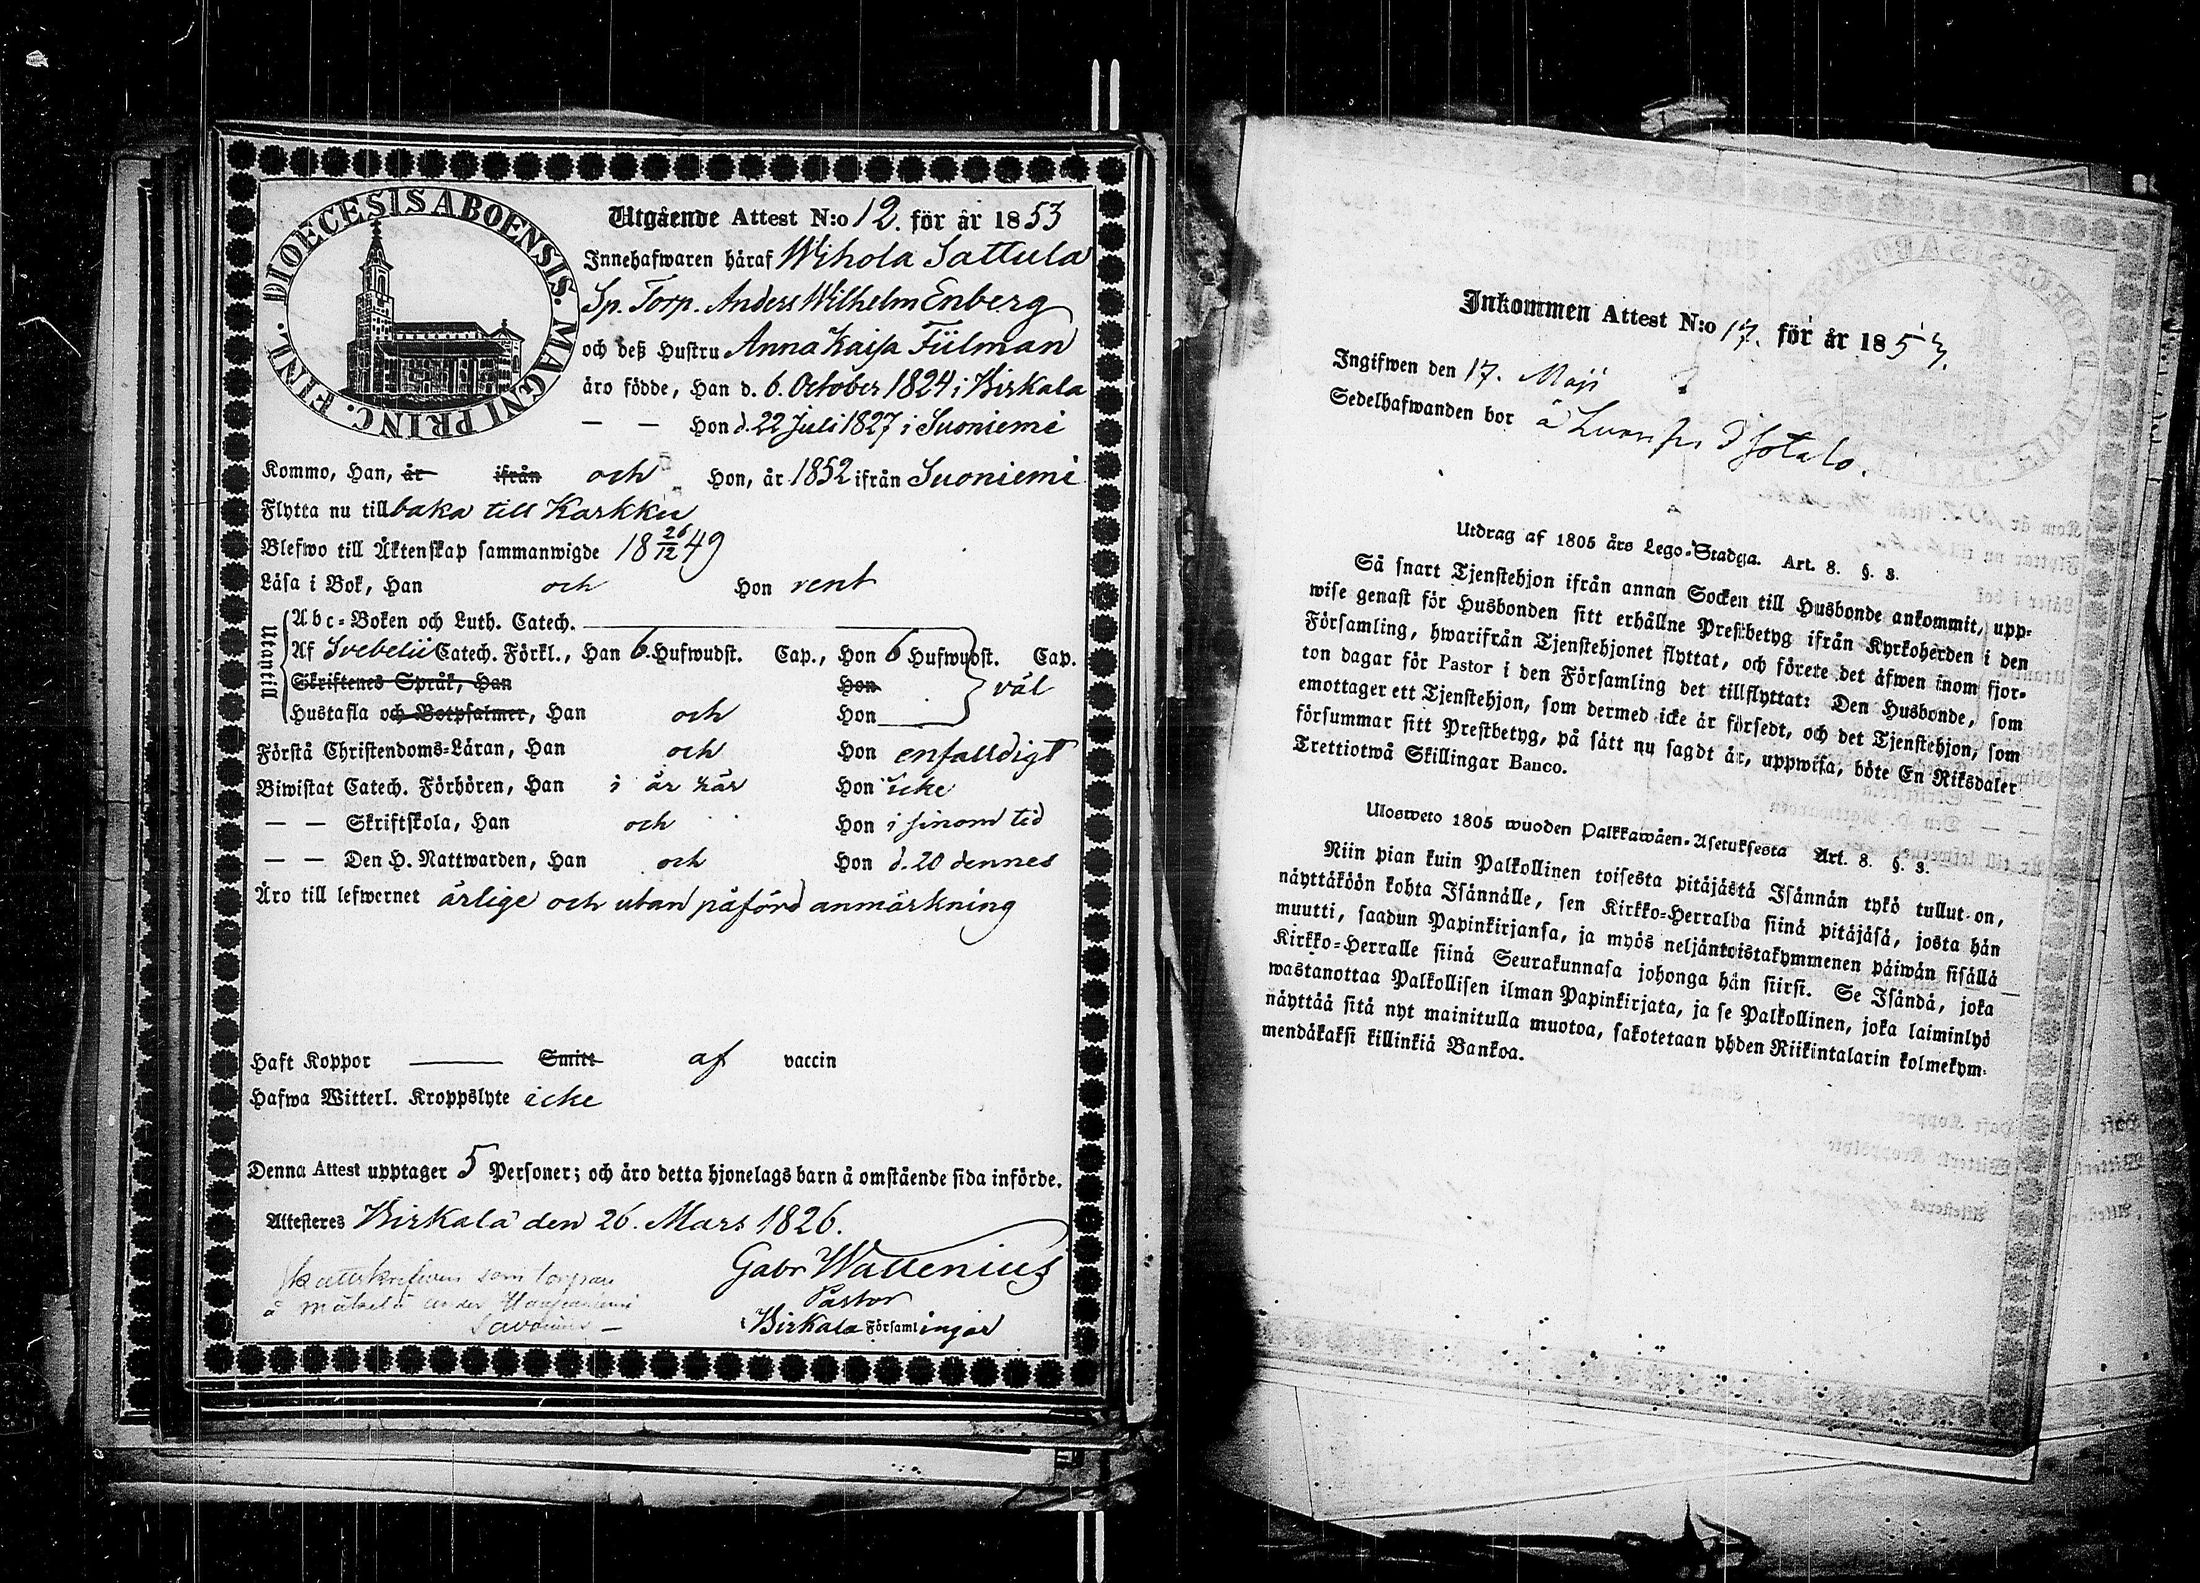 DIOECESIS ABOENSIS. MAGNI PRINC. FINL.
Utgående Attest N:o 12. för år 1853
Innehafwaren häraf Wihola Sattula
Sp. Torp. Anders Wilhelm Enberg
och deß Hustru Anna Kaisa Fiilman
äro födde, Han d. 6. October 1824 i Birkala
— — Hon d. 22 Juli 1827 i Suoniemi
Kommo, Han, år ifrån och Hon, år 1852 ifrån Suoniemi
Flytta nu till baka till Karkku
Blefwo till Äktenskap sammanwigde 18 26/12 49
Läsa i Bok, Han och Hon rent
Utantill
Abc-Boken och Luth. Catech.
Af Svebelii Catech. Förkl., Han 6 Hufwudst. Cap., Hon 6 Hufwudst. Cap.
Skriftenes Språk, Han Hon väl
Hustafla och Botpsalmer, Han och Hon
Förstå Christendoms-Läran, Han och Hon enfalldigt
Biwistat Catech. Förhören, Han i år här Hon icke
— — Skriftskola, Han och Hon i sinom tid
— — Den H. Nattwarden, Han och Hon d. 20 dennes
Äro till lefwernet ärlige och utan påförd anmärkning
Haft Koppor —— Smitt af vaccin
Hafwa Witterl. Kroppslyte icke
Denna Attest upptager 5 Personer; och äro detta hjonelags barn å omstående sida införde.
Attesteres Birkala den 26. Mars 1826.
Gabr Wallenius
Pastor
i Birkala Församlingar
som torpare
å under
Inkommen Attest N:o 17. för år 1853.
Ingifwen den 17. Maji
Sedelhafwanden bor å
Utdrag af 1805 års Lego-Stadga. Art. 8. §. 3.
Så snart Tjenstehjon ifrån annan Socken till Husbonde ankommit, upp-
wise genast för Husbonden sitt erhållne Prestbetyg ifrån Kyrkoherden i den
Församling, hwarifrån Tjenstehjonet flyttat, och förete det äfwen inom fjor-
ton dagar för Pastor i den Församling det tillflyttat: Den Husbonde, som
emottager ett Tjenstehjon, som dermed icke är försedt, och det Tjenstehjon, som
försummar sitt Prestbetyg, på sätt nu sagdt är, uppwisa, böte En Riksdaler
Trettiotwå Skillingar Banco.
Ulosweto 1805 wuoden Palkkawäen-Asetuksesta Art. 8. §. 3.
Niin pian kuin Palkollinen toisesta pitäjästä Isännän tykö tullut on,
näyttäköön kohta Isännälle, sen Kirkko-Herralda siinä pitäjäsä, josta hän
muutti, saadun Papinkirjansa, ja myös neljäntoistakymmenen päiwän sisällä
Kirkko-Herralle siinä Seurakunnasa johonga hän siirsi. Se Isändä, joka
wastanottaa Palkollisen ilman Papinkirjata, ja se Palkollinen, joka laiminlyö
näyttää sitä nyt mainitulla muotoa, sakotetaan yhden Riikintalarin kolmekym-
mendäkaksi killinkiä Bankoa.